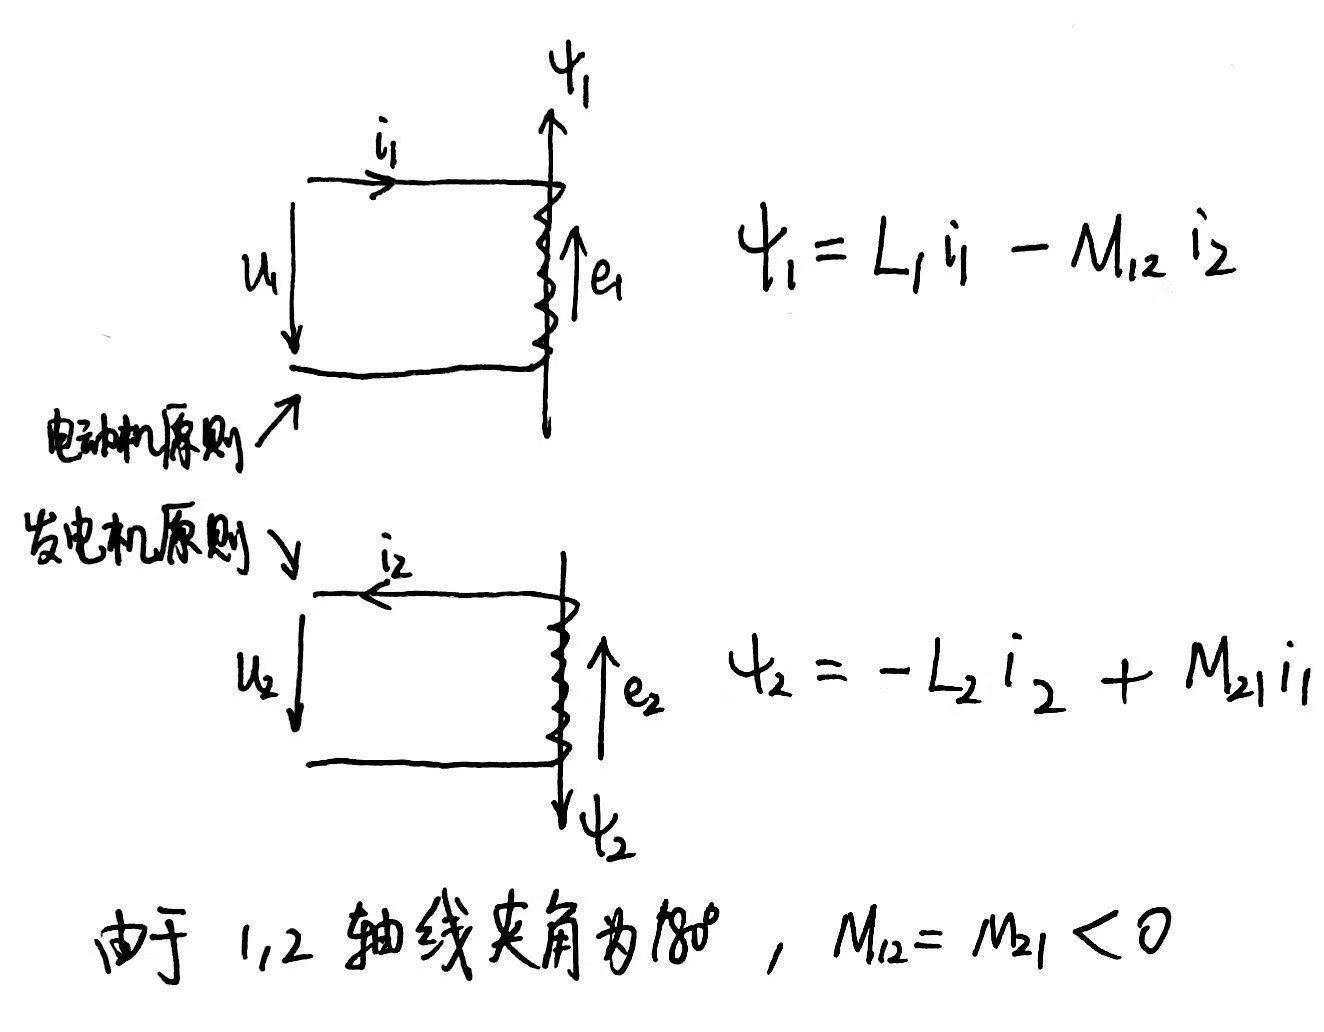 ψ₁
i₁
u₁
e₁
ψ₁ = L₁ i₁ − M₁₂ i₂
电动机原则
发电机原则
i₂
u₂
e₂
ψ₂ = −L₂ i₂ + M₂₁ i₁
ψ₂
由于 1,2 轴线夹角为180°, M₁₂ = M₂₁ < 0